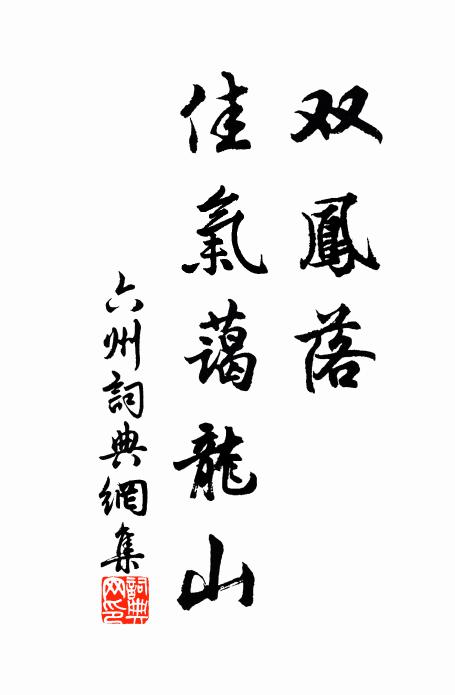 双鳳落
佳氣藹龍山
六州詞典網集
詞典
网印